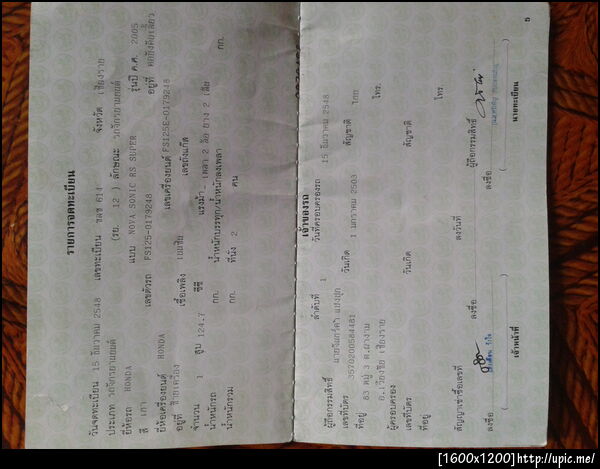 รายการจดทะเบียน
วันจดทะเบียน 15 ธันวาคม 2548 เลขทะเบียน 614 จังหวัด เชียงราย
ประเภท รถจักรยานยนต์ (รย. 12 ) ลักษณะ รถจักรยานยนต์
ยี่ห้อรถ HONDA แบบ NOVA SONIC RS SUPER รุ่นปี ค.ศ. 2005
สี เทา เลขตัวรถ FS125-0179248 อยู่ที่
ยี่ห้อเครื่องยนต์ HONDA เลขเครื่องยนต์ FS125E-0179248
อยู่ที่ เชื้อเพลิง เบนซิน เลขถังแก๊ส
จำนวน 1 สูบ 124.7 ซีซี แรงม้า - เพลา 2 ล้อ ยาง 2 เส้น
น้ำหนักรถ กก. น้ำหนักบรรทุก/น้ำหนักลงเพลา กก.
น้ำหนักรวม กก. ที่นั่ง 2 คน
5
เจ้าของรถ
ลำดับที่ 1 วันที่ครอบครองรถ 15 ธันวาคม 2548
ผู้ถือกรรมสิทธิ์
เลขที่บัตร 3570200584481 วันเกิด 1 มกราคม 2503 สัญชาติ ไทย
ที่อยู่ 83 หมู่ 3 ต.ยางฮอม โทร.
ผู้ครอบครอง
เลขที่บัตร วันเกิด สัญชาติ
ที่อยู่ โทร.
สัญญาเช่าซื้อเลขที่ ลงวันที่
ลงชื่อ ลงชื่อ ผู้ถือกรรมสิทธิ์ ลงชื่อ
( ) ( ) ( )
เจ้าหน้าที่ นายทะเบียน
[1600x1200]http://upic.me/